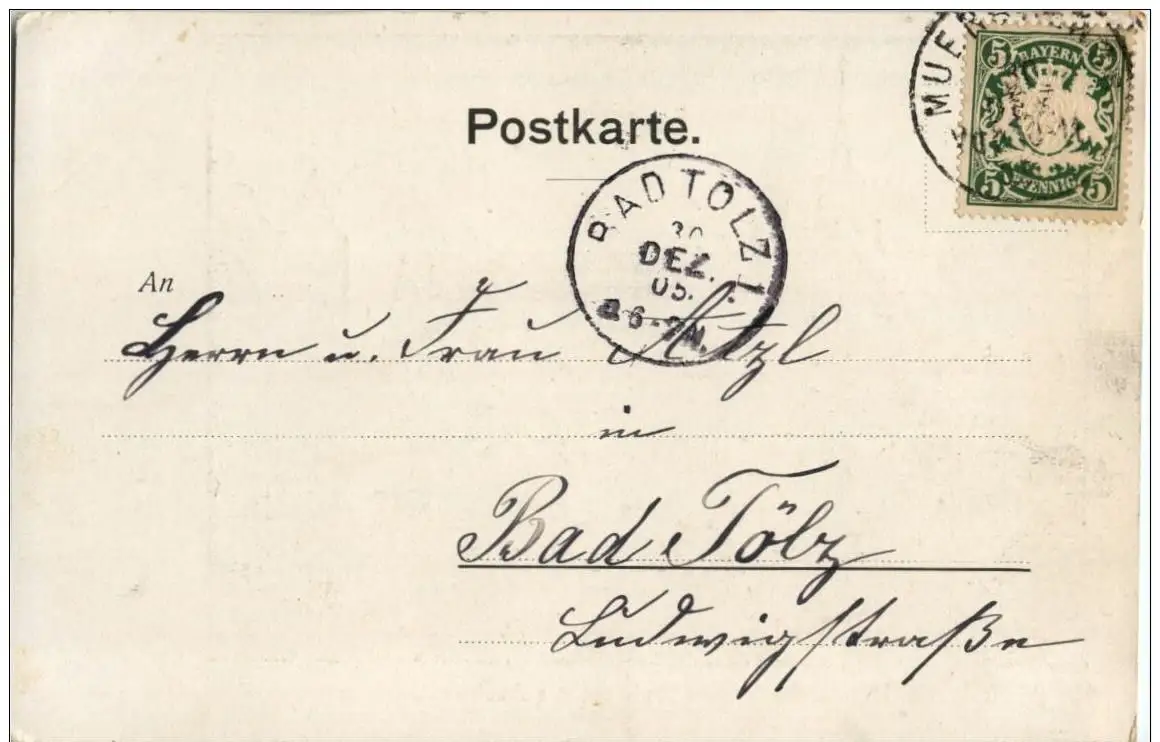 Postkarte.
5 BAYERN 5
5 PFENNIG 5
BAD TÖLZ 1.
30
DEZ.
05.
6-
An
Herrn u. Frau
in
Bad Tölz
Ludwigstraße